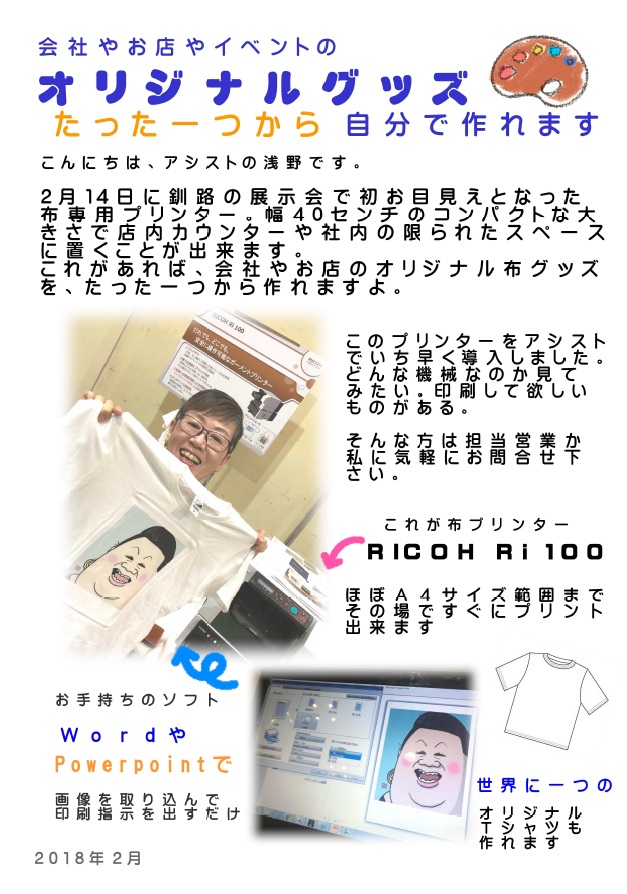 会社やお店やイベントの
オリジナルグッズ
たった一つから 自分で作れます
こんにちは、アシストの浅野です。
2月14日に釧路の展示会で初お目見えとなった
布専用プリンター。幅40センチのコンパクトな大
きさで店内カウンターや社内の限られたスペース
に置くことが出来ます。
これがあれば、会社やお店のオリジナル布グッズ
を、たった一つから作れますよ。
RICOH Ri 100
だれでも、どこでも、
安全に操作可能なガーメントプリンター
このプリンターをアシスト
でいち早く導入しました。
どんな機械なのか見て
みたい。印刷して欲しい
ものがある。
そんな方は担当営業か
私に気軽にお問合せ下
さい。
これが布プリンター
RICOH Ri 100
ほぼA4サイズ範囲まで
その場ですぐにプリント
出来ます
お手持ちのソフト
Wordや
Powerpointで
画像を取り込んで
印刷指示を出すだけ
世界に一つの
オリジナル
Tシャツも
作れます
2018年2月